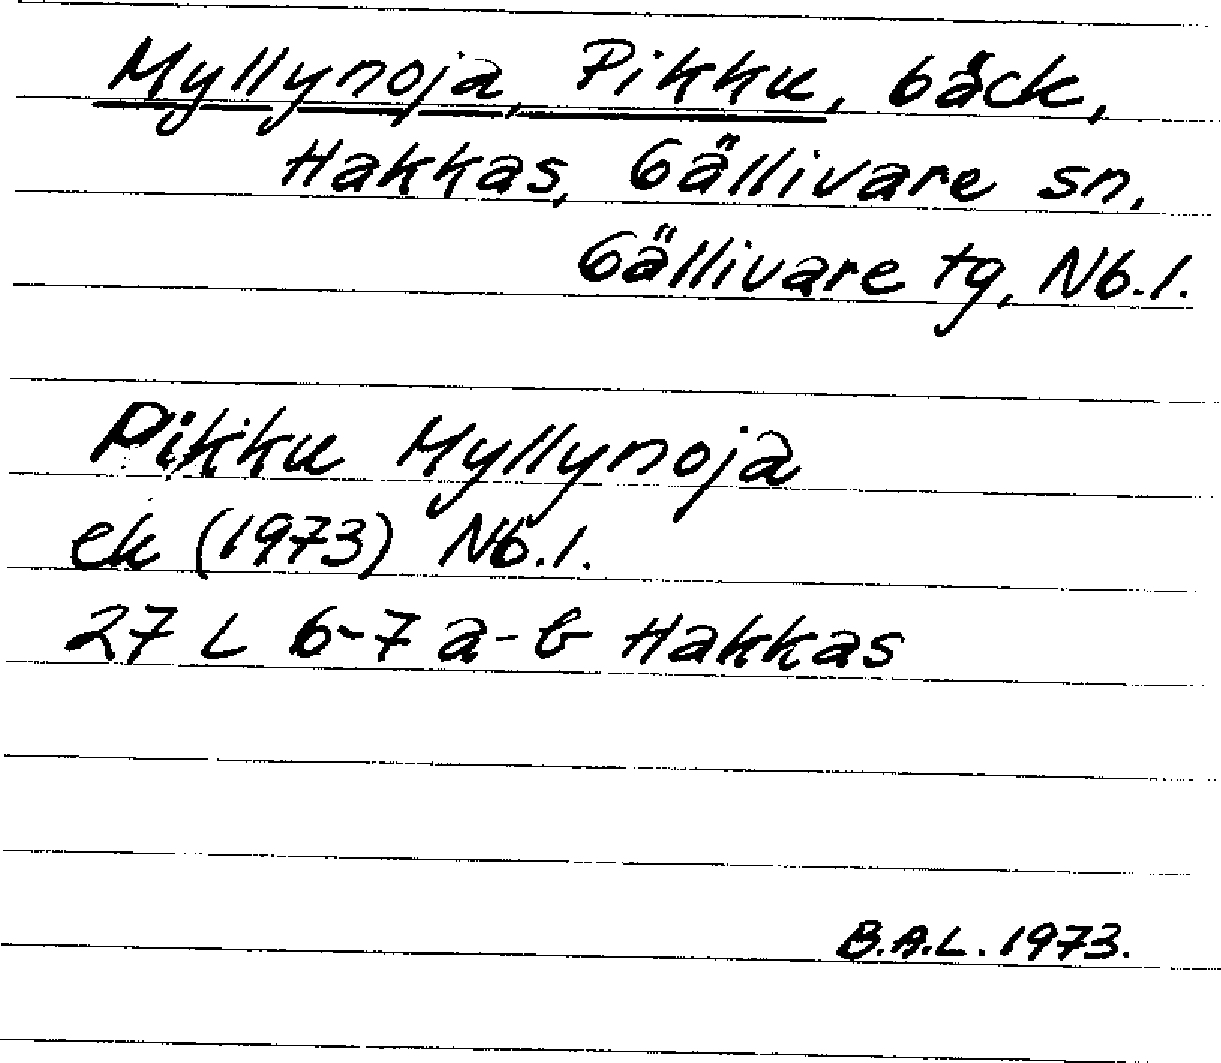 Myllynoja, Pikku, bäck,
Hakkas, Gällivare sn.
Gällivare tg, Nb.l.
Pikku Myllynoja
ek (1973) Nb.l.
27 L 6-7 a-b Hakkas
B.A.L. 1973.